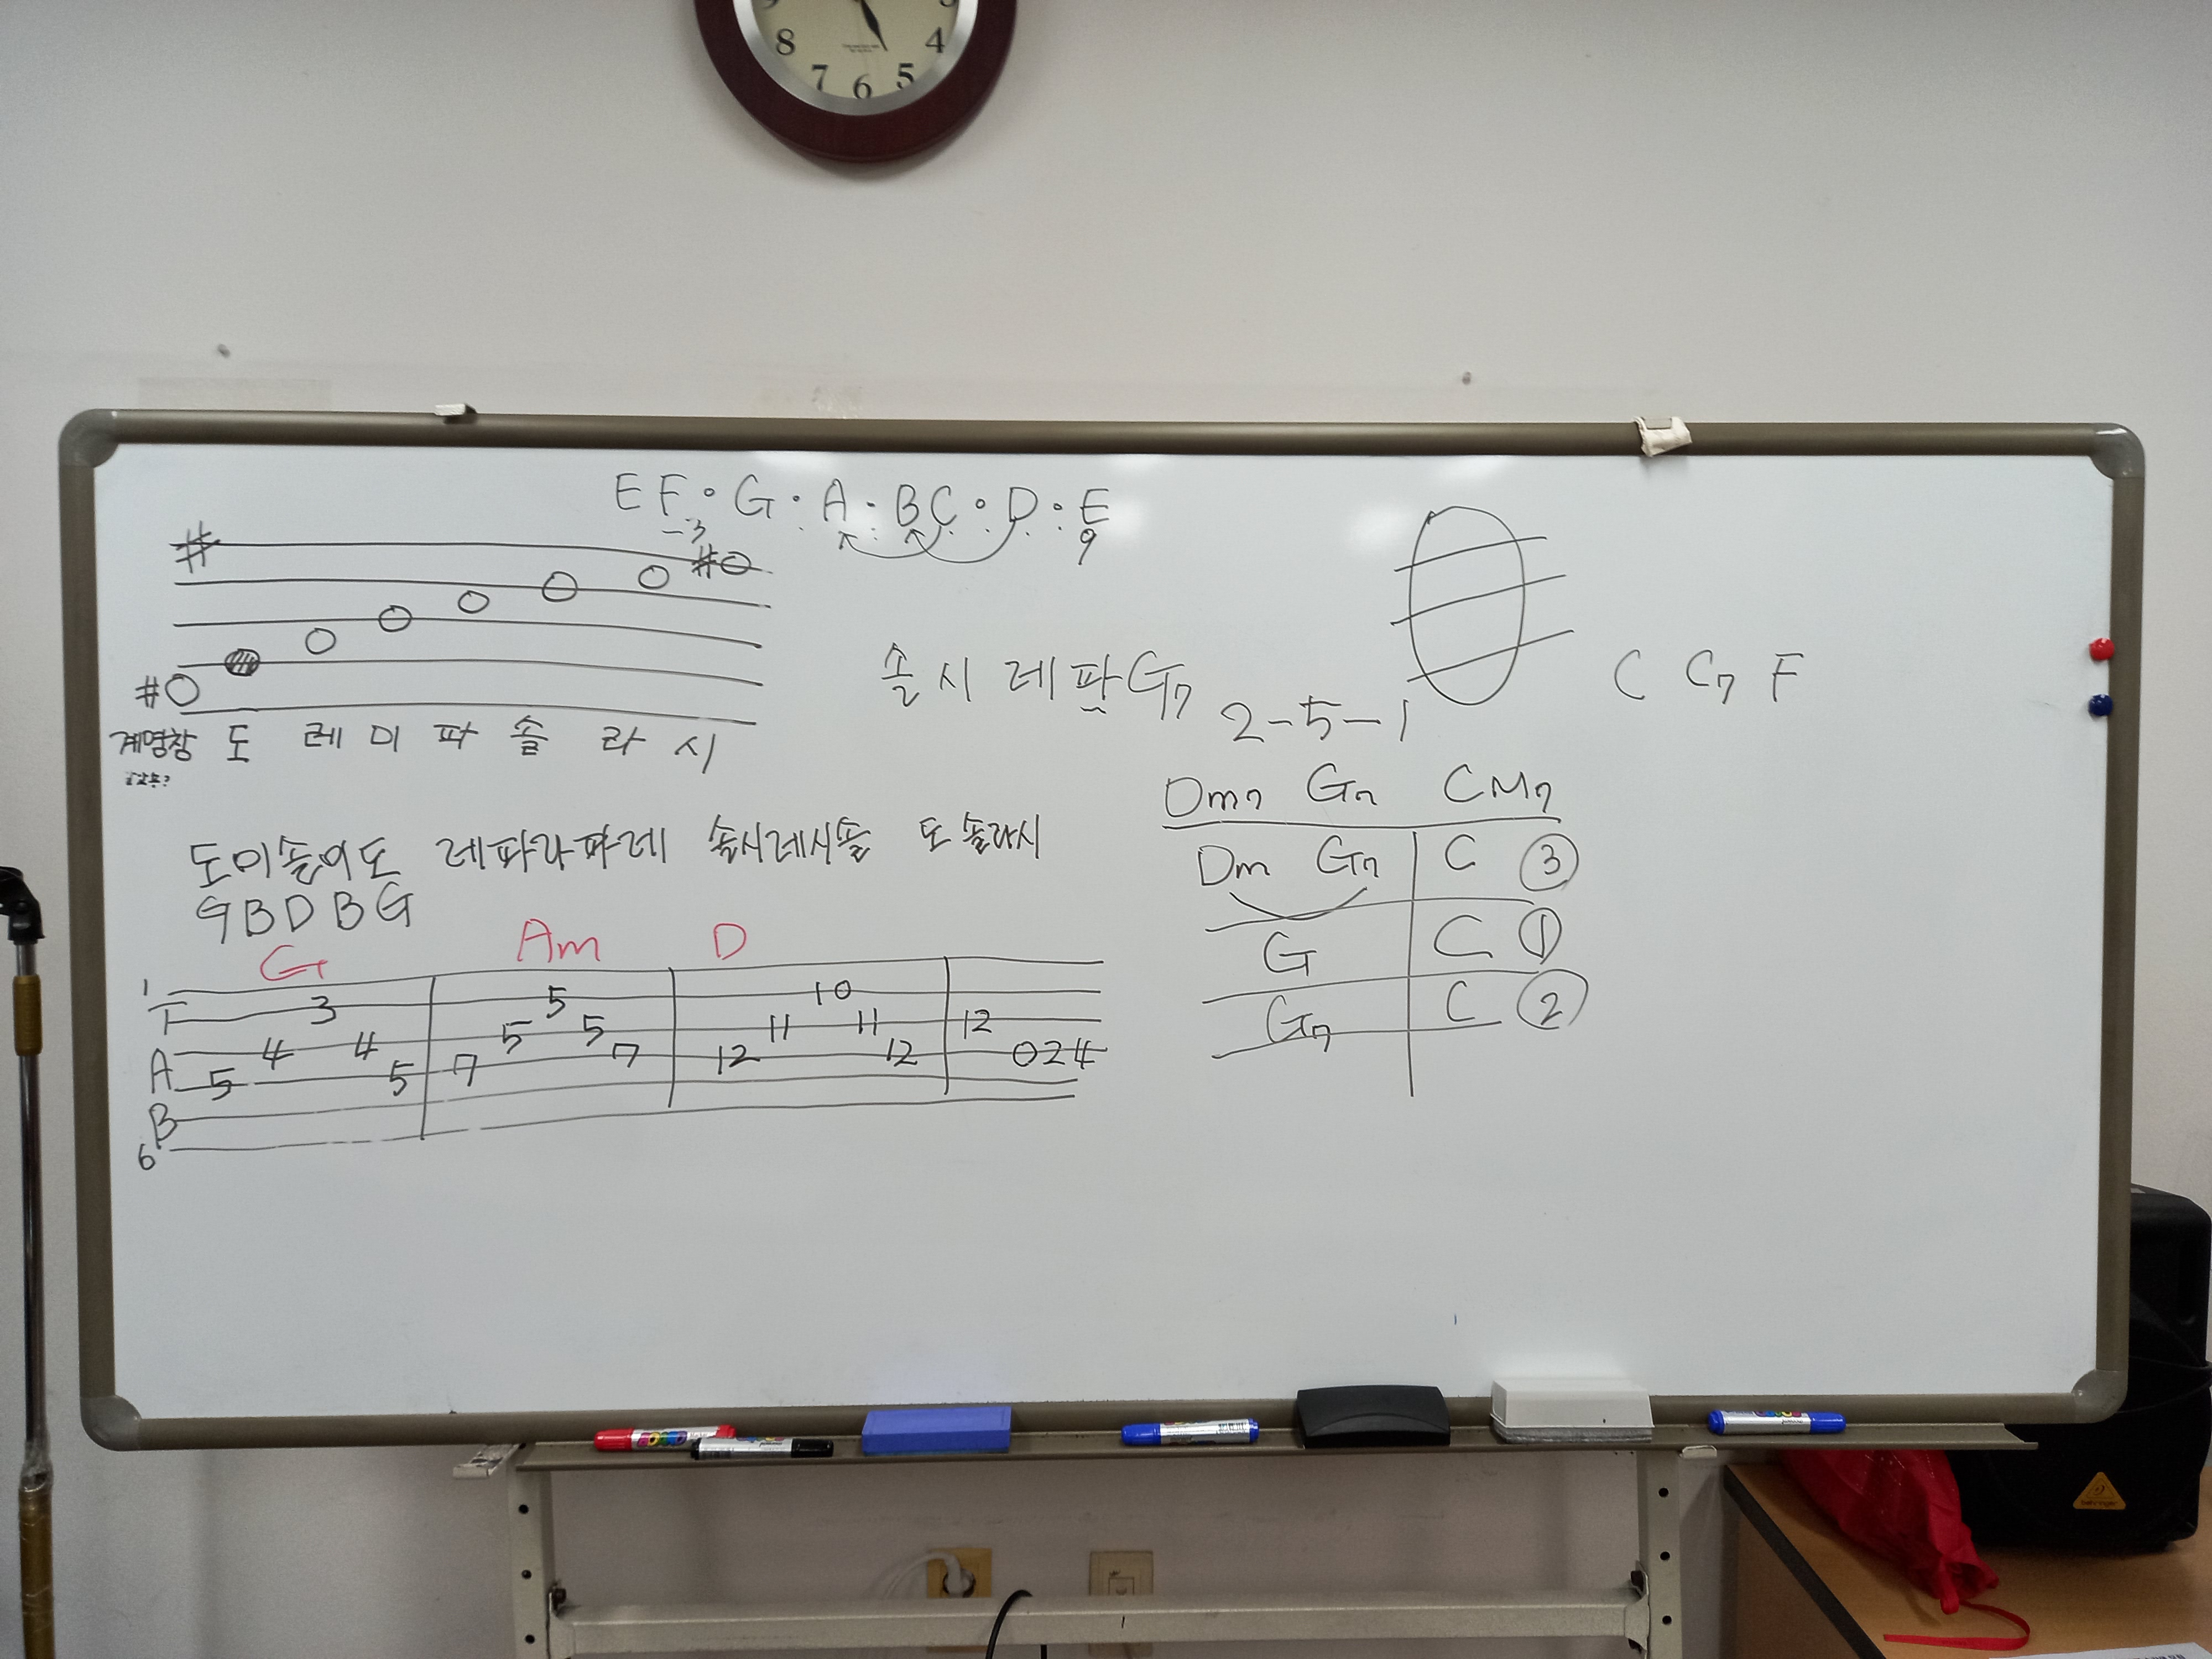 9 3
8 4
7 6 5
E F • G • A • B C • D • E
3 9
# #
#
계명창 도 레 미 파 솔 라 시
솔 시 레 파 G7
C C7 F
2-5-1
Dm7 G7 CM7
도미솔미도 레파라파레 솔시레시솔 도 솔라시
GBDBG
Dm G7 C ③
G C ①
G7 C ②
G Am D
1
T 3 5 10
4 4 5 5 11 11 12
A 5 5 7 7 12 12 0 2 4
B
6
behringer